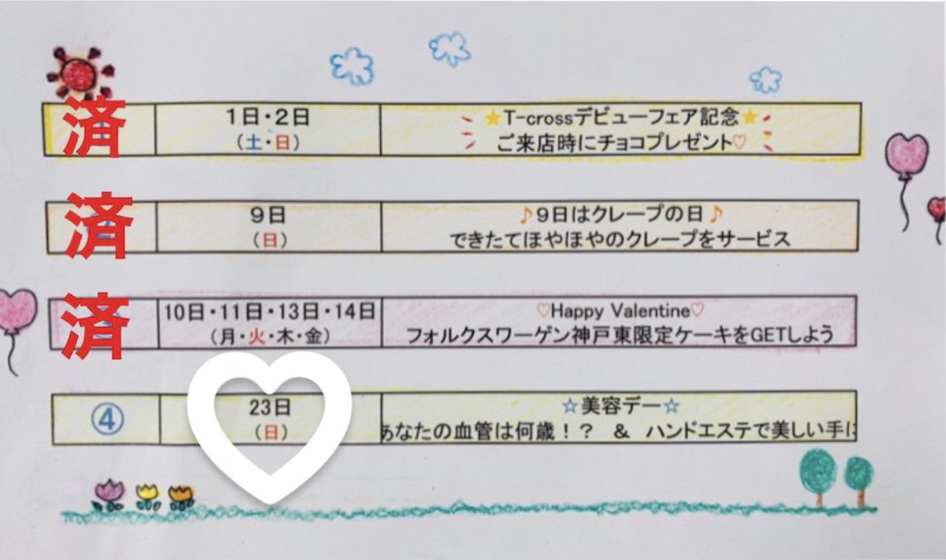 済
1日・2日
（土・日）
★T-crossデビューフェア記念★
ご来店時にチョコプレゼント♡
済
9日
（日）
♪9日はクレープの日♪
できたてほやほやのクレープをサービス
済
10日・11日・13日・14日
（月・火・木・金）
♡Happy Valentine♡
フォルクスワーゲン神戸東限定ケーキをGETしよう
④
23日
（日）
☆美容デー☆
あなたの血管は何歳！？ ＆ ハンドエステで美しい手に